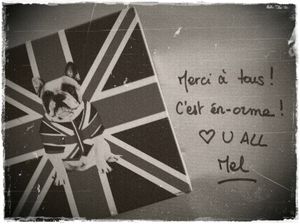 Merci à tous !
C'est én-orme !
♡ U ALL
Mel